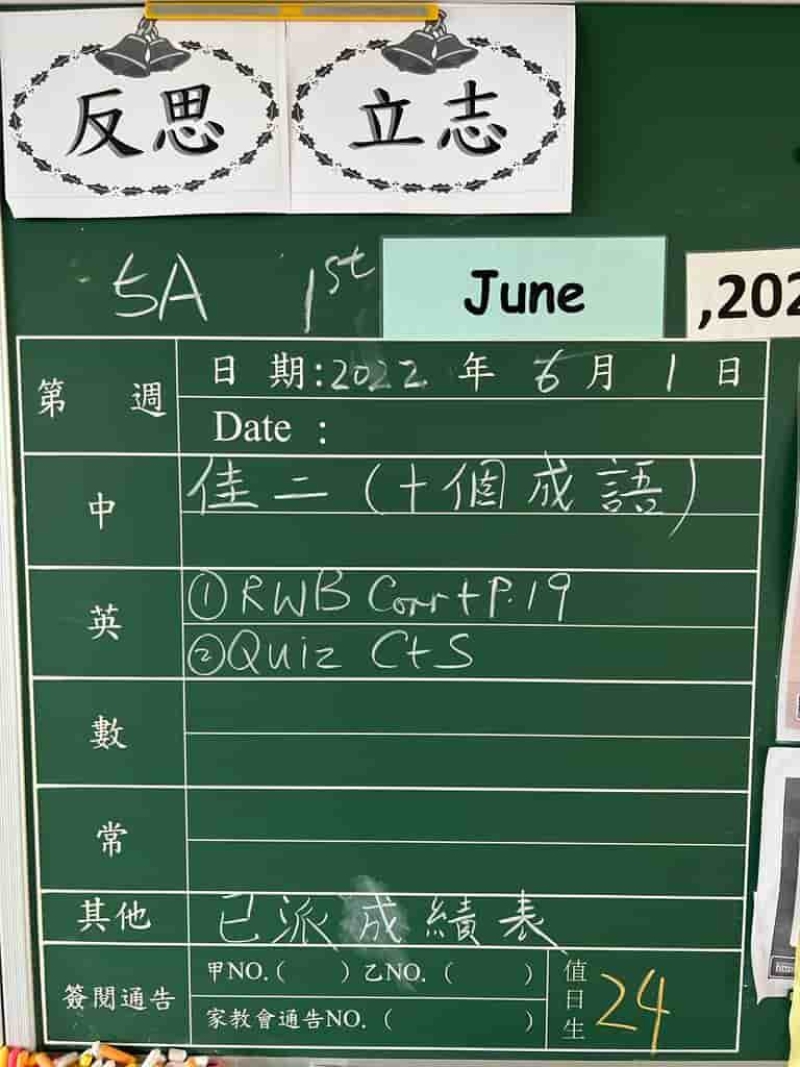 反思 立志
5A 1st June ,202
第 週 日 期:2022 年 6 月 1 日
Date :
中 佳二 (十個成語)
英 ①RWB Corr+P.19
②Quiz C+S
數
常
其他 已派成績表
簽閱通告 甲NO.( ) 乙NO. ( )
家教會通告NO. ( )
值日生 24